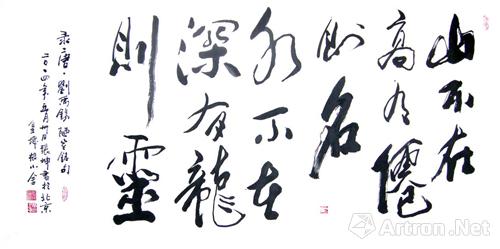 山不在
高有僊
則名
水不在
深有龍
則靈
录唐·劉禹錫陋室銘句
二〇一四年五月卅日張坤書於北京
Artron.Net